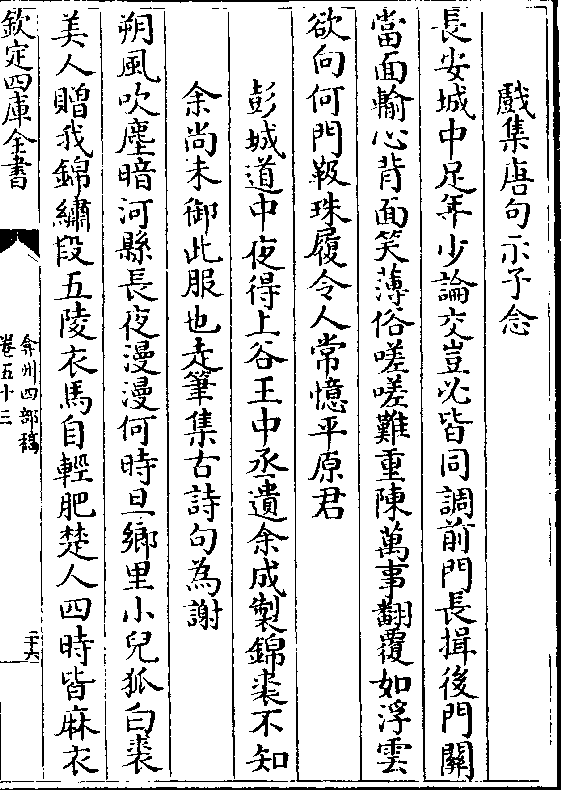 戲集唐句示子念
長安城中足年少論交豈必皆同調前門長揖後門關
當面輸心背面笑薄俗嗟嗟難重陳萬事翻覆如浮雲
欲向何門趿珠履令人常憶平原君
彭城道中夜得上谷王中丞遺余成製錦裘不知
余尚未御此服也走筆集古詩句為謝
朔風吹塵暗河縣長夜漫漫何時旦鄉里小兒狐白裘
美人贈我錦繡段五陵衣馬自輕肥楚人四時皆麻衣
欽定四庫全書
弇州四部稿
卷五十三
二十六